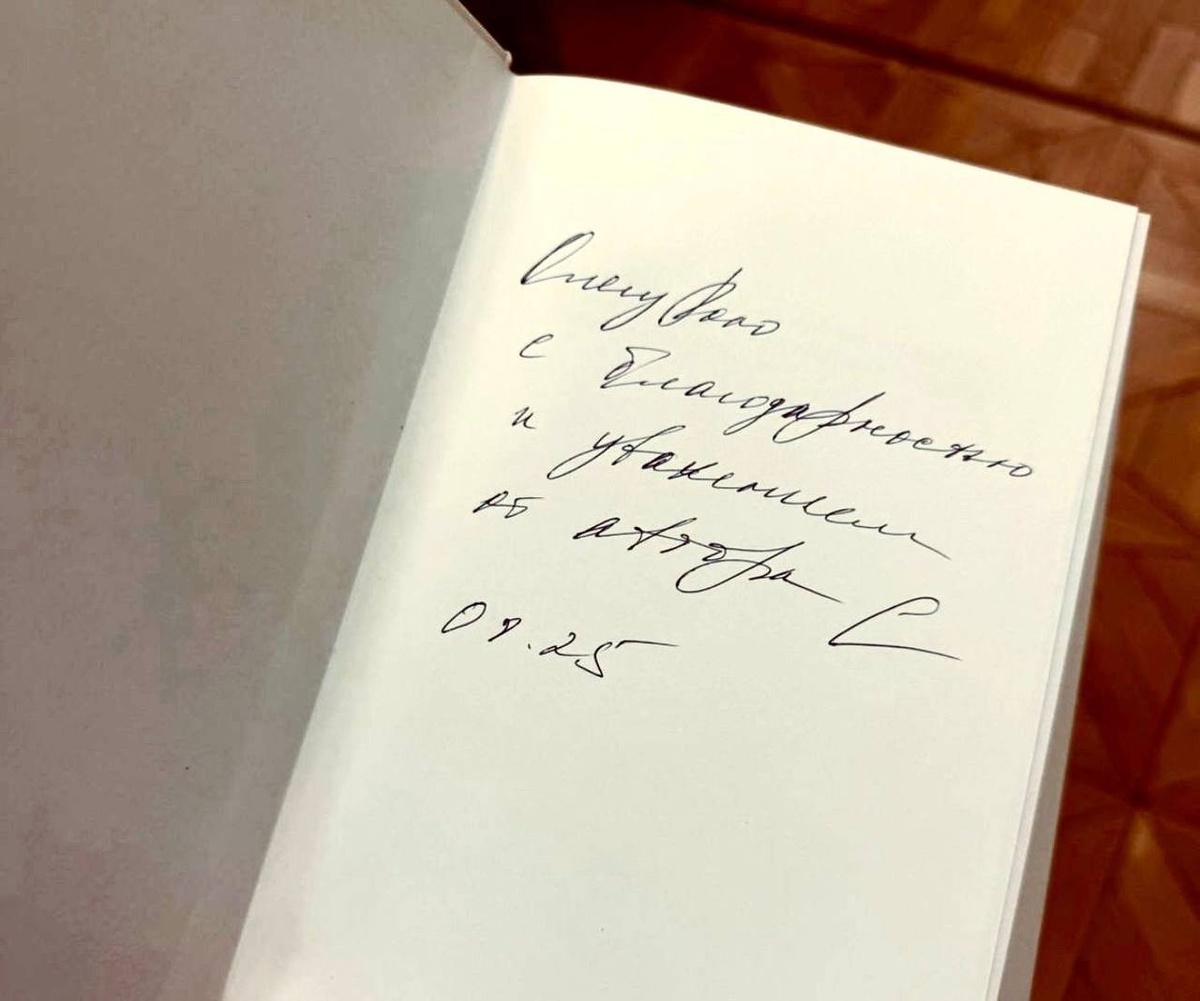 с благодарностью
и уважением
от автора
09.25